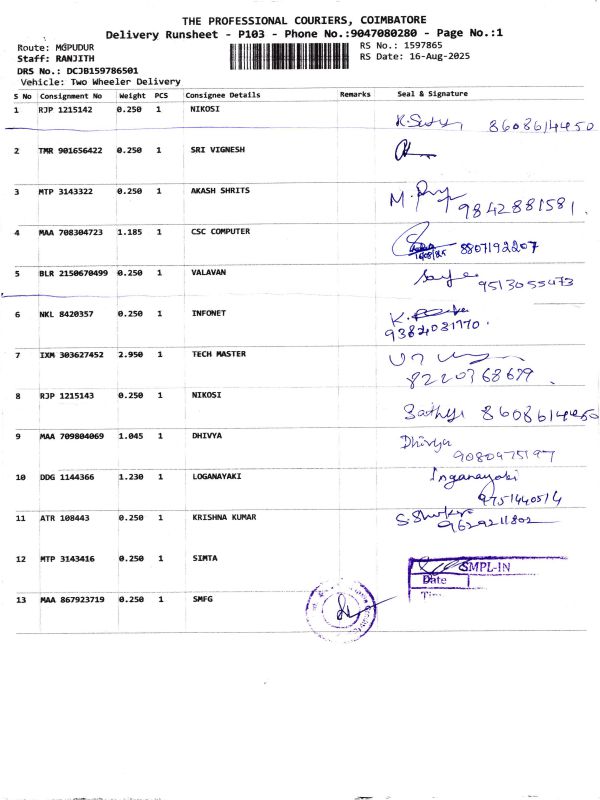 THE PROFESSIONAL COURIERS, COIMBATORE
Delivery Runsheet - P103 - Phone No.:9047080280 - Page No.:1
Route: MGPUDUR RS No.: 1597865
Staff: RANJITH RS Date: 16-Aug-2025
DRS No.: DCJB159786501
Vehicle: Two Wheeler Delivery
S No Consignment No Weight PCS Consignee Details Remarks Seal & Signature
1 RJP 1215142 0.250 1 NIKOSI
8608614450
2 TMR 901656422 0.250 1 SRI VIGNESH
3 MTP 3143322 0.250 1 AKASH SHRITS
9842881581.
4 MAA 708304723 1.185 1 CSC COMPUTER
16/08/25 8807192207
5 BLR 2150670499 0.250 1 VALAVAN
9513055473
6 NKL 8420357 0.250 1 INFONET
9384031770.
7 IXM 303627452 2.950 1 TECH MASTER
8220368679.
8 RJP 1215143 0.250 1 NIKOSI
Sathya 8608614450
9 MAA 709804069 1.045 1 DHIVYA
Dhivya
9080475197
10 DDG 1144366 1.230 1 LOGANAYAKI
Loganayaki
9751440514
11 ATR 108443 0.250 1 KRISHNA KUMAR
9629211802
12 MTP 3143416 0.250 1 SIMTA
SMPL-IN
Date
13 MAA 867923719 0.250 1 SMFG